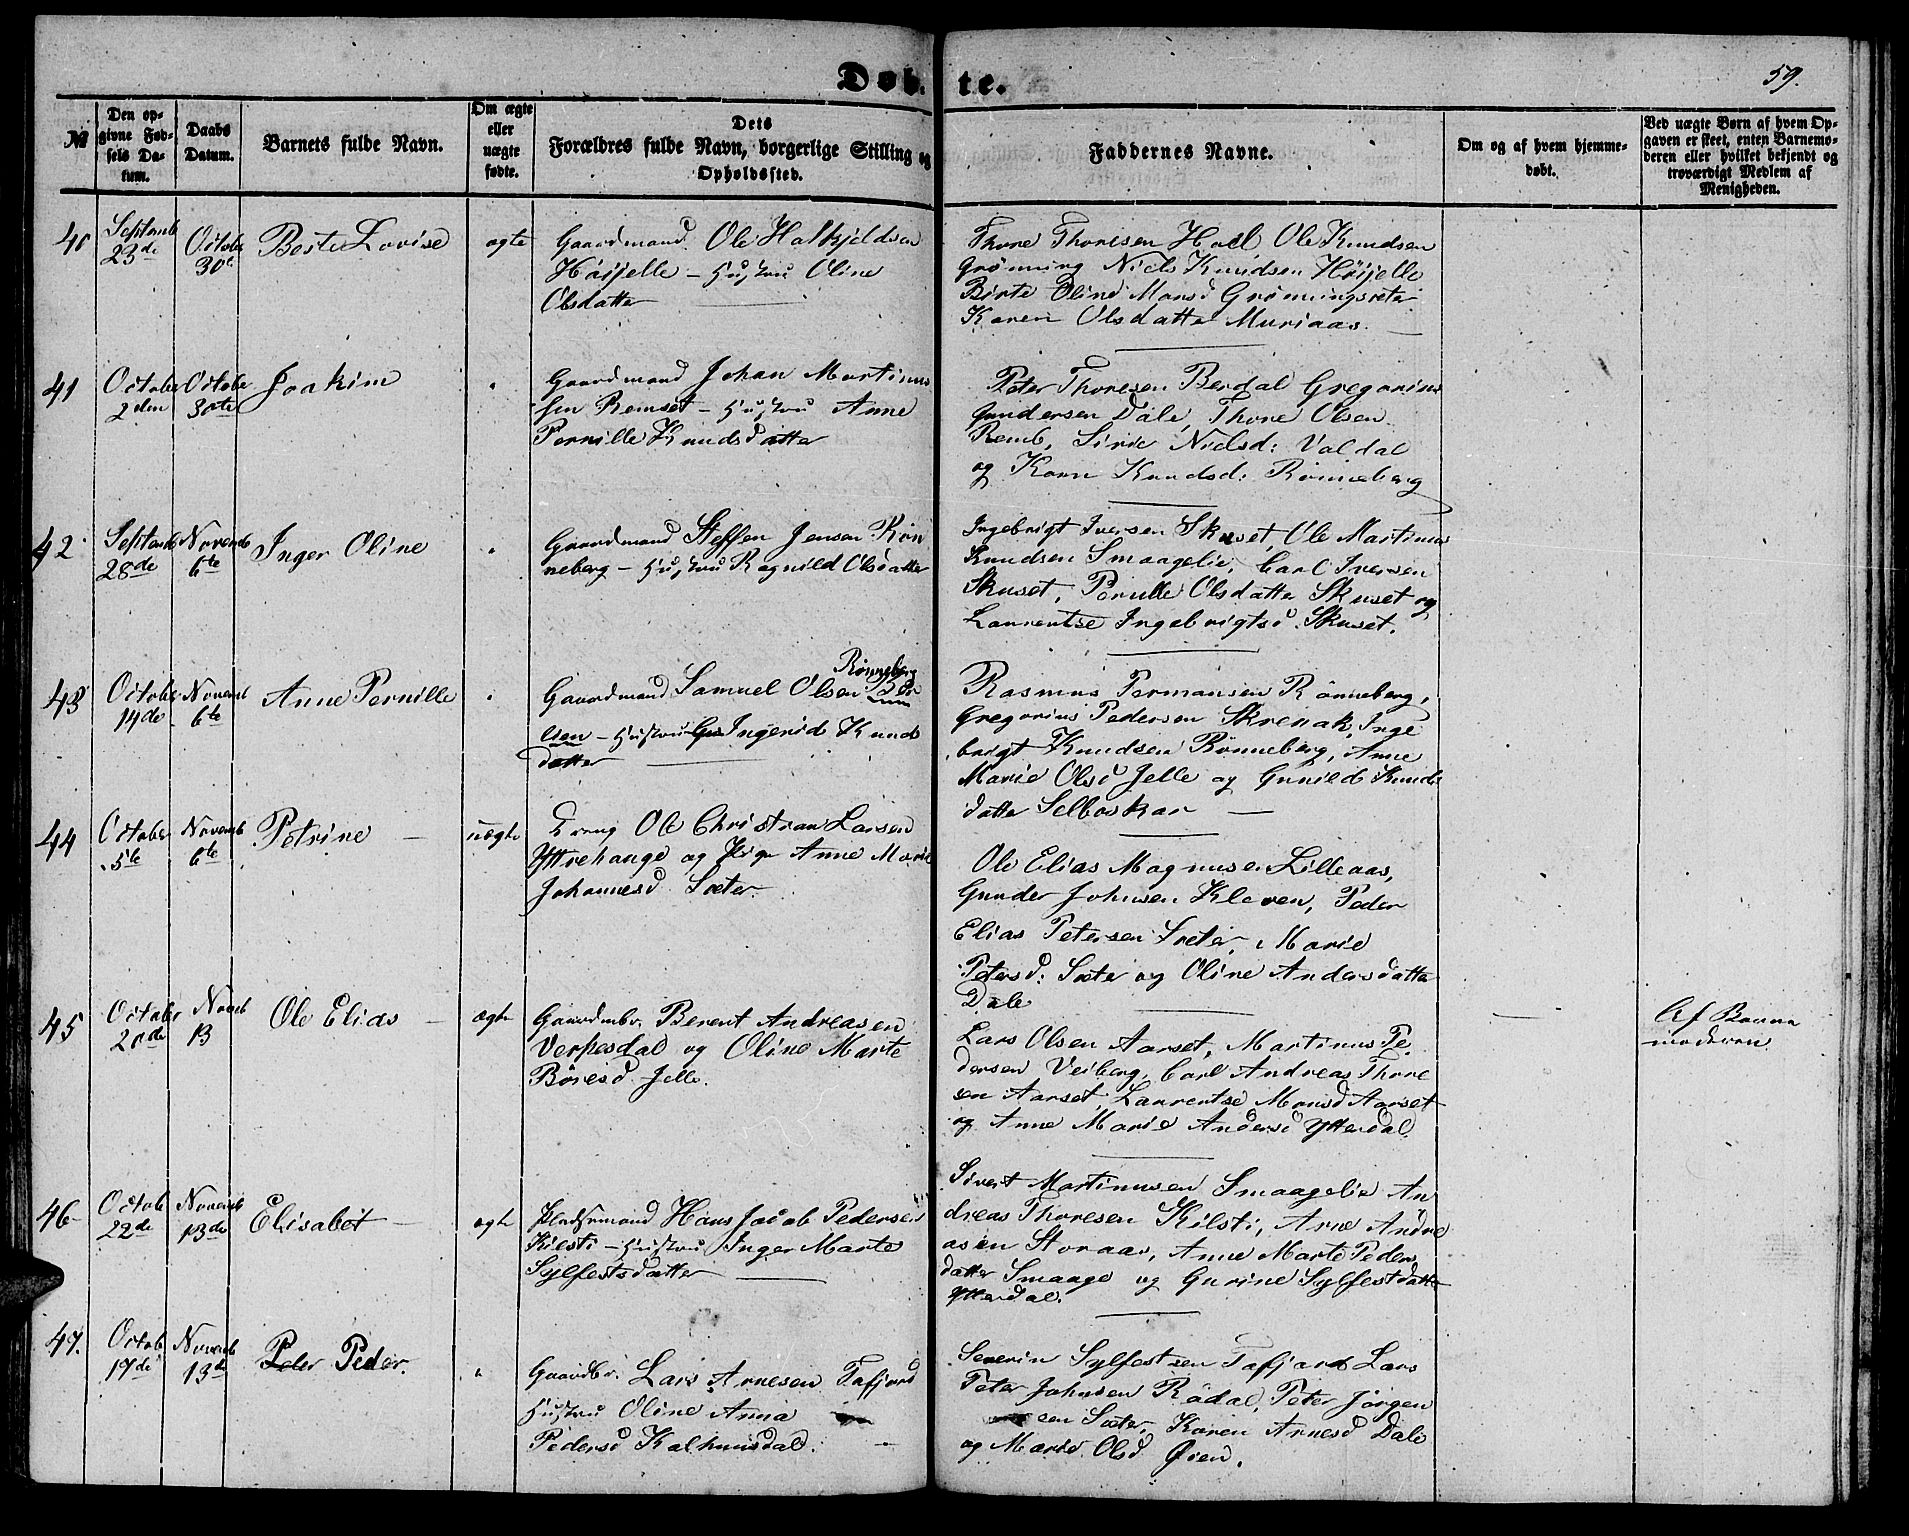 Døbte.
59.
No
Den op-
givne Fød-
sels Da-
tum.
Daabs
Datum.
Barnets fulde Navn.
Om ægte
eller
uægte
fødte.
Dets
Forældres fulde Navn, borgerlige Stilling og
Opholdssted.
Faddernes Navne.
Om og af hvem hjemme-
døbt.
Ved uægte Børn af hvem Op-
gaven er skeet, enten Barnemo-
deren eller hvilket bekjendt og
troværdigt Medlem af
Menigheden.
40
Septemb
23de
Octobr
30te
Beste Lovise
ægte
Gaardmand Ole Halkjeldsen
Høijelle - Hustru Oline
Olsdatter
Thore Thoresen Hoel Ole Knudsen
Grønning Niels Knudsen Høijelle
Birte Oline Monsd Grønningsæter
Karen Olsdatter Muriaas.
41
October
2den
Octobe
30te
Joakim
"
Gaardmand Johan Martinus
sen Remset - Hustru Anne
Pernille Knudsdatter
Peter Thoresen Berdal Gregorius
Gundersen Dale, Thore Olsen
Remb, Sirie Nielsd: Valdal
og Karn Knudsd: Rønneberg
42
Septemb
28de
Novemb
6te
Inger Oline
"
Gaardmand Steffen Jensen Røn
neberg - Hustru Ragnild Olsdatter
Ingebrigt Iversen Skuset, Ole Martinus
Knudsen Smaagelie, Carl Iversen
Skuset, Pernille Olsdatter Skuset og
Laurentse Ingebrigtsd. Skuset.
43
October
14de
Novemb
6te
Anne Pernille
"
Rønneberg
Gaardmand Samuel Olsen
- Hustru Ingerid Knuds
datter
Rasmus Permansen Rønneberg,
Gregorius Pedersen Skrenak, Inge
brigt Knudsen Rønneberg, Anne
Marie Olsd Jelle og Gunild Knuds
datter Selboskar
44
October
5te
Novemb
6te
Petrine
uægte
Dreng Ole Christian Larsen
Yttrehauge og Pige Anne Marie
Johannesd Sæter.
Ole Elias Magnusen Lilleaas,
Gunder Johnsen Kleven, Peder
Elias Petersen Sæter, Marie
Petersd: Sæter og Oline Andersdatter
Dale
45
October
20de
Novemb
13
Ole Elias
ægte
Gaardmbr. Berent Andreasen
Verpesdal og Oline Marte
Børesd Jelle.
Lars Olsen Aarset, Martinus Pe-
dersen Veiberg, Carl Andreas Thore
sen Aarset, Laurentse Monsd Aarset
og Anne Marie Andersd Ytterdal.
Af Barne
moderen.
46
Octob
22de
Novemb
13de
Elisabet
ægte
Pladsemand Hans Jacob Pedersen
Kilsti - Hustru Inger Marte
Sylfestsdatter
Sivert Martinusen Smaagelie An
dreas Thoresen Kilsti, Arne Andre
asen Storaas, Anne Marte Peders
datter Smaage og Gurine Sylfestdatter
Ytterdal.
47.
Octob
17de
Novemb
13de
Peder Peder.
"
Gaardbr. Lars Arnesen Tafjord
Hustru Oline Anna
Pedersd Kalhuusdal.
Severin Sylfestsen Tafjord Lars
Peter Johnsen Rødal, Peter Jørgen
sen Sæter, Karen Arnesd Dale
og Marie Olsd Øien.